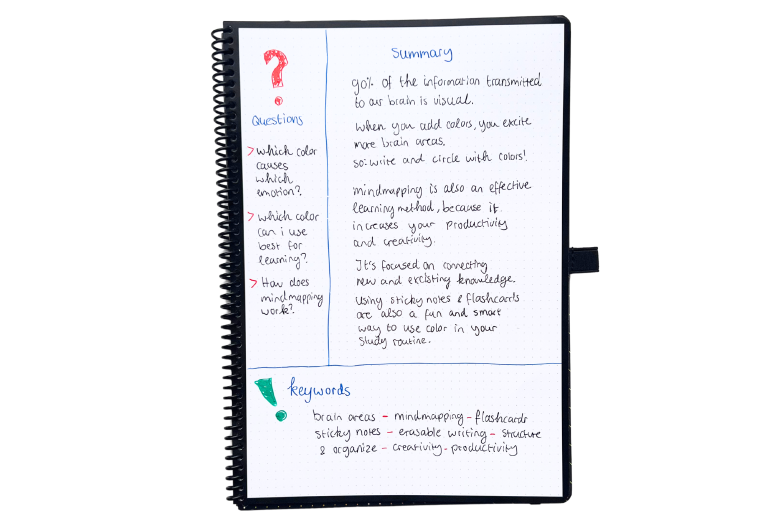 ?
Questions
> which color
causes
which
emotion?
> which color
can i use
best for
learning?
> How does
mindmapping
work?
Summary
90% of the information transmitted
to our brain is visual.
when you add colors, you excite
more brain areas.
so: write and circle with colors!
mindmapping is also an effective
learning method, because it
increases your productivity
and creativity.
It's focused on connecting
new and excisting knowledge.
Using sticky notes & flashcards
are also a fun and smart
way to use color in your
study routine.
! keywords
brain areas - mindmapping - flashcards
sticky notes - erasable writing - structure
& organize - creativity - productivity